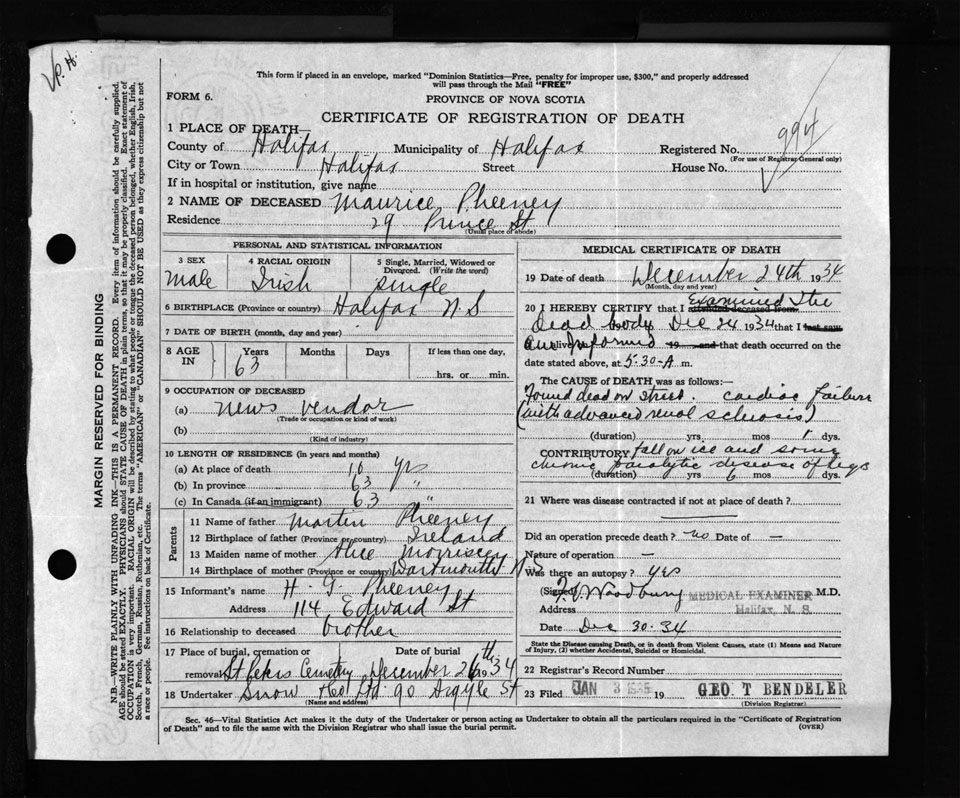 Vp. H.
This form if placed in an envelope, marked "Dominion Statistics—Free, penalty for improper use, $300," and properly addressed
will pass through the Mail "FREE"
FORM 6.
PROVINCE OF NOVA SCOTIA
CERTIFICATE OF REGISTRATION OF DEATH
994
1 PLACE OF DEATH—
County of Halifax Municipality of Halifax Registered No.
(For use of Registrar General only)
City or Town Halifax Street House No.
If in hospital or institution, give name
2 NAME OF DECEASED Maurice Pheeney
Residence 29 Prince St
(Usual place of abode)
PERSONAL AND STATISTICAL INFORMATION
3 SEX male
4 RACIAL ORIGIN Irish
5 Single, Married, Widowed or Divorced. (Write the word) single
6 BIRTHPLACE (Province or country) Halifax N.S
7 DATE OF BIRTH (month, day and year)
8 AGE IN Years 63 Months Days If less than one day, hrs. or min.
9 OCCUPATION OF DECEASED
(a) news vendor
(Trade or occupation or kind of work)
(b)
(Kind of industry)
10 LENGTH OF RESIDENCE (in years and months)
(a) At place of death 16 yrs
(b) In province 63 "
(c) In Canada (if an immigrant) 63 "
Parents
11 Name of father Martin Pheeney
12 Birthplace of father (Province or country) Ireland
13 Maiden name of mother Alice Morrissey
14 Birthplace of mother (Province or country) Dartmouth N.S
15 Informant's name H. G. Pheeney
Address 114 Edward St
16 Relationship to deceased brother
17 Place of burial, cremation or removal St Peters Cemetery Date of burial December 26th 1934
18 Undertaker Snow & Co Ltd. 90 Argyle St
(Name and address)
MEDICAL CERTIFICATE OF DEATH
19 Date of death December 24th 1934
(Month, day and year)
20 I HEREBY CERTIFY that I attended deceased from Examined The
Dead body Dec 24 1934 that I last saw
alive and Informed 19 and that death occurred on the
date stated above, at 5.30-A m.
The CAUSE OF DEATH was as follows:
Found dead on street. cardiac failure
(with advanced renal sclerosis)
(duration) yrs. mos 1 dys.
CONTRIBUTORY fall on ice and some
chronic paralytic disease of legs
(duration) yrs. mos. dys.
21 Where was disease contracted if not at place of death?
Did an operation precede death? no Date of —
Nature of operation —
Was there an autopsy? yes
(Signed) Woodbury MEDICAL EXAMINER M.D.
Address Halifax, N. S.
Date Dec 30.34
State the Disease causing Death, or in death from Violent Causes, state (1) Means and Nature
of Injury, (2) whether Accidental, Suicidal or Homicidal.
22 Registrar's Record Number
23 Filed JAN 3 1935 19 GEO. T BENDELER
(Division Registrar)
Sec. 46—Vital Statistics Act makes it the duty of the Undertaker or person acting as Undertaker to obtain all the particulars required in the "Certificate of Registration
of Death" and to file the same with the Division Registrar who shall issue the burial permit.
(OVER)
MARGIN RESERVED FOR BINDING
N.B.—WRITE PLAINLY WITH UNFADING INK—THIS IS A PERMANENT RECORD. Every item of information should be carefully supplied.
AGE should be stated EXACTLY. PHYSICIANS should STATE CAUSE OF DEATH in plain terms, so that it may be properly classified. Exact statement of
OCCUPATION is very important. RACIAL ORIGIN will be described by stating to what people or tongue the deceased person belonged, whether English, Irish,
Scotch, French, German, Russian, Ruthenian, etc. The terms "AMERICAN" or "CANADIAN" SHOULD NOT BE USED as they express citizenship but not
a race or people. See instructions on back of Certificate.